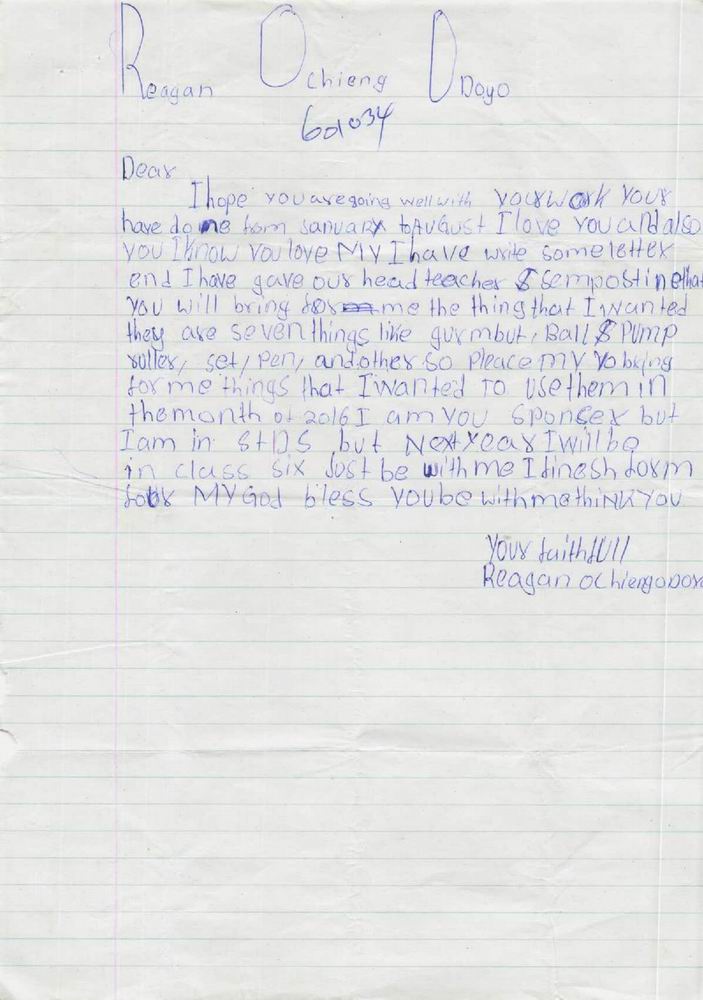 Reagan Ochieng Odoyo
601034
Dear
I hope you are going well with your work your
have done from January to August I love you and also
you I know you love MY I have write some letter
end I have gave our head teacher $ sempostine that
you will bring for me the thing that I wanted
they are seven things like gurmbut, Ball $ Pump
ruller, set, pen, and other so Pleace my yo bring
for me things that I wanted TO use them in
the month of 2016 I am you sponser but
I am in StD5 but Next year I will be
in class six Just be with me I finesh form
four MY God bless you be with me thinK You
Your faithfull
Reagan Ochieng